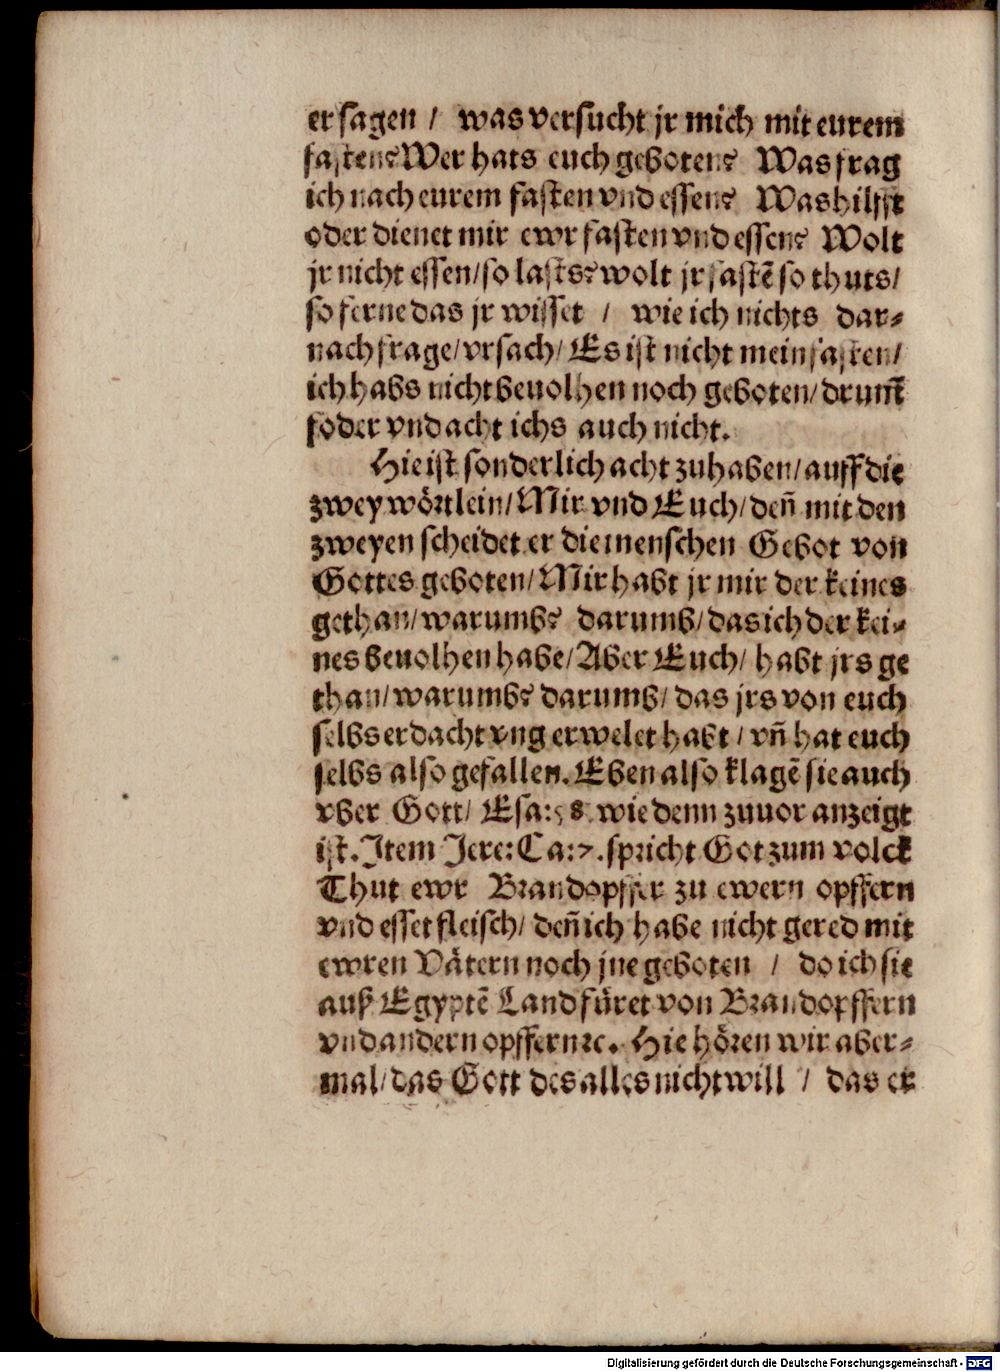 er sagen / was versucht jr mich mit eurem
fasten? Wer hats euch geboten? Was frag
ich nach eurem fasten vnd essen? Was hilfft
oder dienet mir ewr fasten vnd essen? Wolt
jr nicht essen/so lasts? wolt jr fastē so thuts/
so ferne das jr wisset / wie ich nichts dar-
nach frage/vrsach/Es ist nicht mein fasten/
ich habs nicht beuolhen noch geboten/drum̄
foder vnd acht ichs auch nicht.
Hie ist sonderlich acht zuhaben/auff die
zwey wörtlein/Mir vnd Euch/den̄ mit den
zweyen scheidet er die menschen Gebot von
Gottes geboten/Mir habt jr mir der keines
gethan/warumb? darumb/das ich der kei-
nes beuolhen habe/Aber Euch/ habt jrs ge
than/warumb? darumb/das jrs von euch
selbs erdacht vng erwelet habt / vn̄ hat euch
selbs also gefallen. Eben also klagē sie auch
vber Gott/ Esa:58. wie denn zuuor anzeigt
ist. Item Jere: Ca:7. spricht Got zum volck
Thut ewr Brandopffer zu ewern opffern
vnd esset fleisch/ den̄ ich habe nicht gered mit
ewren Vätern noch jne geboten / do ich sie
auß Egyptē Land füret von Brandopffern
vnd andern opffern ꝛc. Hie hören wir aber-
mal/das Gott des alles nicht will / das er
Digitalisierung gefördert durch die Deutsche Forschungsgemeinschaft - DFG